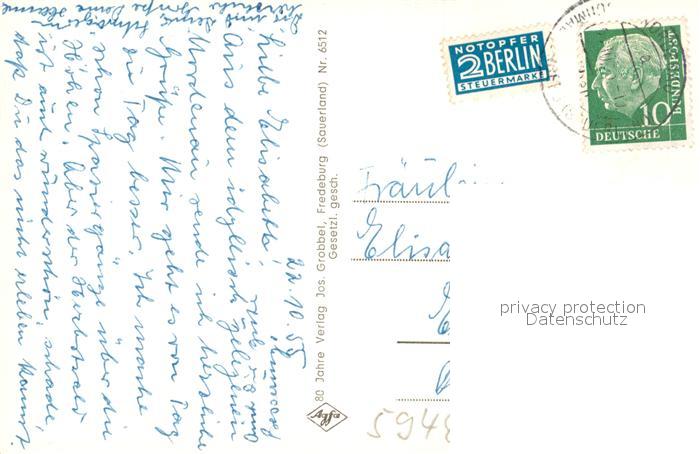 22.10.55
Liebe Elisabeth!
Aus dem idyllisch gelegenen
Nordenau sende ich herzliche
Grüße. Mir geht es von Tag
zu Tag besser. Ich mache
schon Spaziergänge über die
Höhen. Aber der Herbstwald
ist auch wunderschön, schade,
daß Du das nicht erleben kannst.
Dir und Deine
herzliche Grüße Deine
80 Jahre Verlag Jos. Grobbel, Fredeburg (Sauerland) Nr. 6512
Gesetzl. gesch.
Agfa
NOTOPFER
2 BERLIN
STEUERMARKE
10
DEUTSCHE
BUNDESPOST
Fräul
Elisa
594
privacy protection
Datenschutz